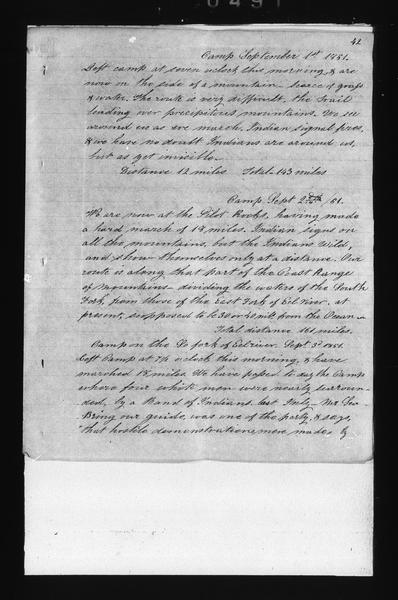 42
Camp September 1st 1851.
Left camp at seven oclock this morning, & are
now on the side of a mountain, scarce of grass
& water. The route is very difficult, the trail
leading over precipitous mountains. We see
around us as we march, Indian signal fires,
& we have no doubt Indians are around us,
but as yet invisible.
Distance 12 miles Total 143 miles
Camp, Sept 2nd 51.
We are now at the Pilot Rocks, having made
a hard march of 18 miles. Indian signs on
all the mountains, but the Indians wild,
and show themselves only at a distance. Our
route is along that part of the Coast Range
of Mountains dividing the waters of the South
Fork, from those of the East Fork of Eel river, at
present, supposed to be 30 or miles from the Ocean
Total distance 161 miles.
Camp on the So fork of Eel river. Sept. 3d 1851.
Left Camp at 7½ oclock this morning, & have
marched 18 miles. We have passed to day the Camp
where four white men were nearly surroun-
ded, by a Band of Indians last July. Mr
our guide, was one of the party, & says,
"that hostile demonstrations were made by